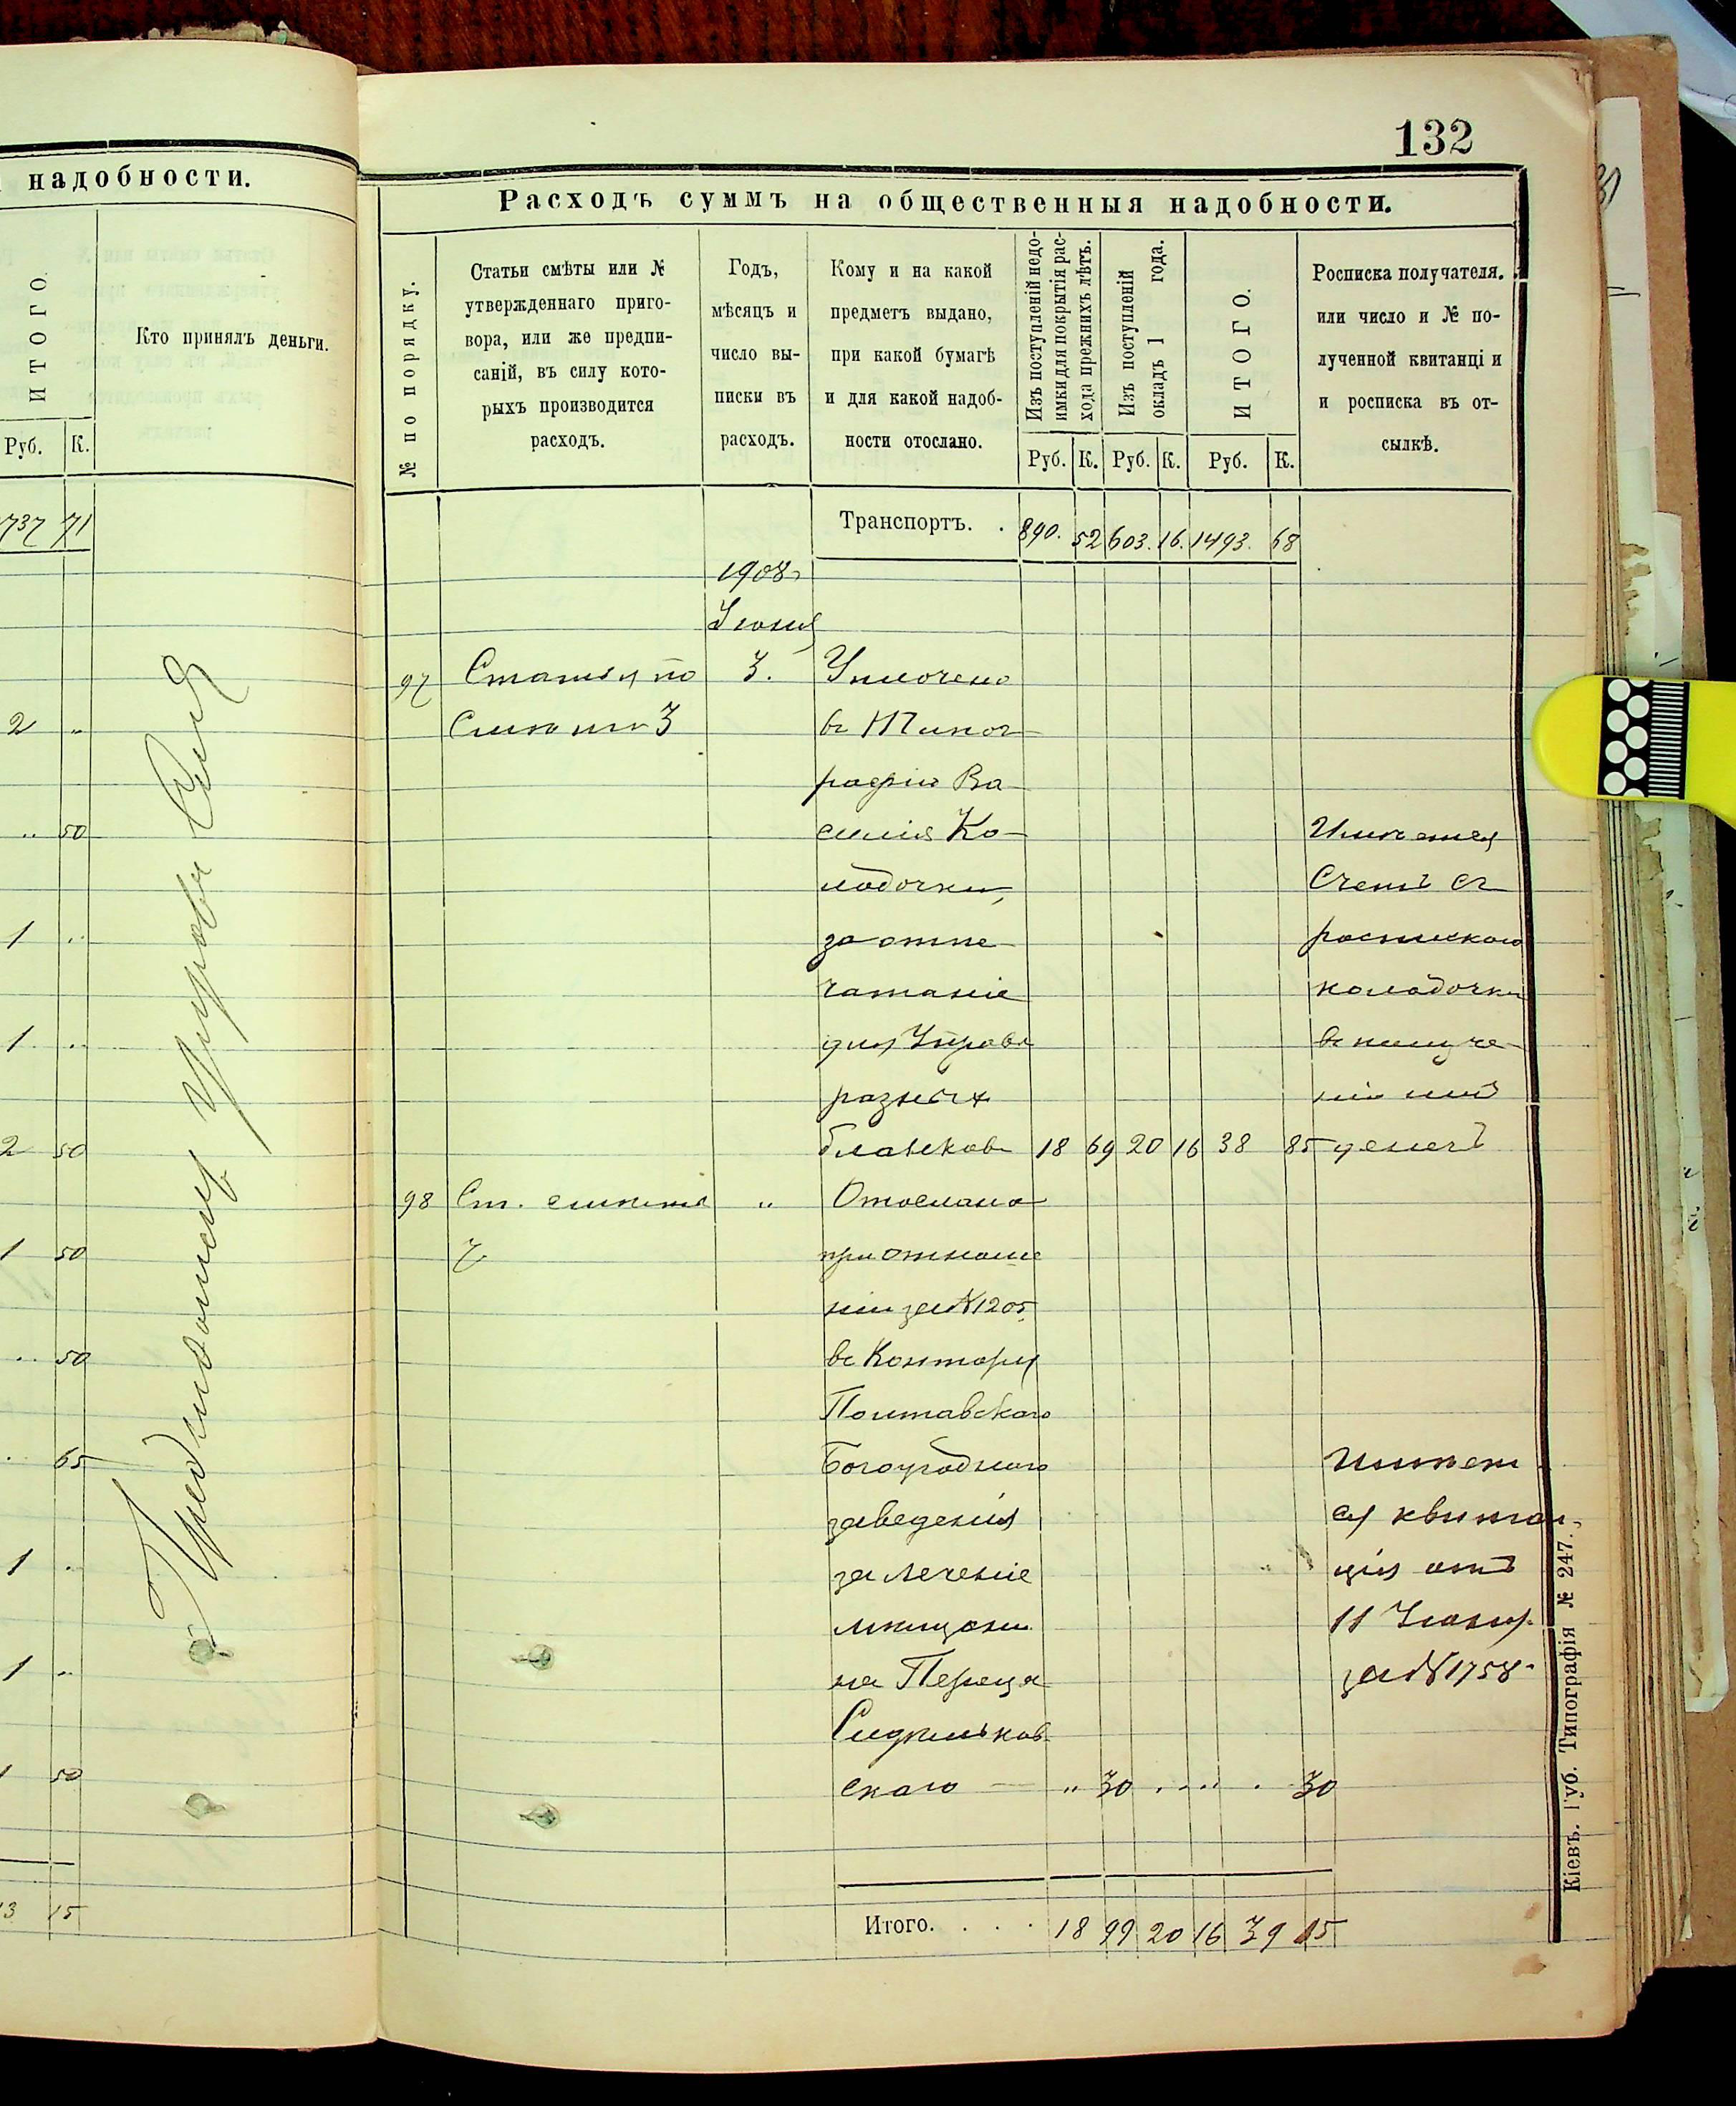 132
надобности.
ИТОГО
Кто принялъ деньги.
Руб. К.
737 71
2 "
" 50
1 "
1 "
2 50
1 50
" 50
65
1
1 "
1 50
3 15
Расходъ суммъ на общественныя надобности.
№ по порядку.
Статьи смѣты или №
утвержденнаго приго-
вора, или же предпи-
саній, въ силу кото-
рыхъ производится
расходъ.
Годъ,
мѣсяцъ и
число вы-
писки въ
расходъ.
Кому и на какой
предметъ выдано,
при какой бумагѣ
и для какой надоб-
ности отослано.
Изъ поступленій недо-
имки для покрытія рас-
хода прежнихъ лѣтъ.
Изъ поступленій
окладъ 1 года.
ИТОГО.
Росписка получателя.
или число и № по-
лученной квитанці и
и росписка въ от-
сылкѣ.
Руб. К. Руб. К. Руб. К.
Транспортъ. . 890. 52 603. 16. 1493. 68
1908
Іюня
97 Статья по 3. Уплочено
Смѣтѣ 3 въ Типог-
рафію Ва-
силія Ко-
лодочки,
за отпе-
чатаніе
для Управы
разныхъ
бланковъ 18 69 20 16 38 85
Имѣется
Счетъ съ
роспискою
колодочки
въ получе-
ніи имъ
денегъ
98 Ст. смѣты " Отослано
7 при отноше
ніи за №1205
въ Контору
Полтавскаго
Богоугоднаго
заведенія
за леченіе
мѣщани
на Переца
скаго — " 30 . . " . 30
Имѣет
ся квитан,
ція отъ
11 Іюня
за №1758
Итого. . . . 18 99 20 16 39 15
Кіевъ. Губ. Типографія № 247.